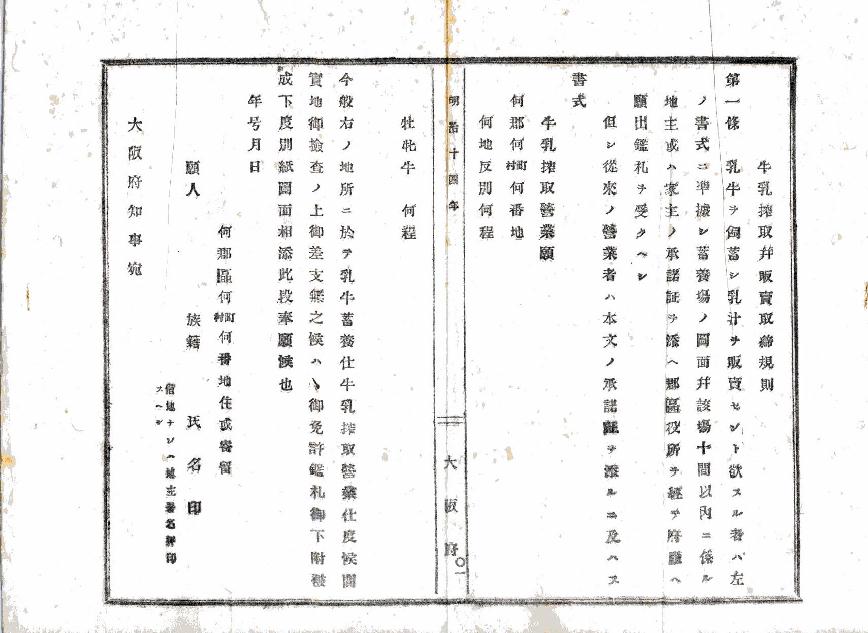 牛乳搾取幷販賣取締規則
第一條　乳牛ヲ飼畜シ乳汁ヲ販賣セント欲スル者ハ左
ノ書式ニ準據シ蓄養塲ノ圖面幷該塲十間以內ニ係ル
地主或ハ家主ノ承諾証ヲ添ヘ郡區役所ヲ經テ府廳ヘ
願出鑑札ヲ受クヘシ
但シ從來ノ營業者ハ本文ノ承諾証ヲ添ルニ及ハス
書式
牛乳搾取營業願
何郡何町村何番地
何地反別何程
明治十四年
大阪府
牡牝牛　何程
今般右ノ地所ニ於テ乳牛蓄養仕牛乳搾取營業仕度候間
實地御撿查ノ上御差支無之候ハヽ御免許鑑札御下附被
成下度別紙圖面相添此段奉願候也
年号月日
何郡區何町村何番地住或寄留
願人　族籍　氏名印
借地ナレハ地主署名調印
スヘシ
大阪府知事宛